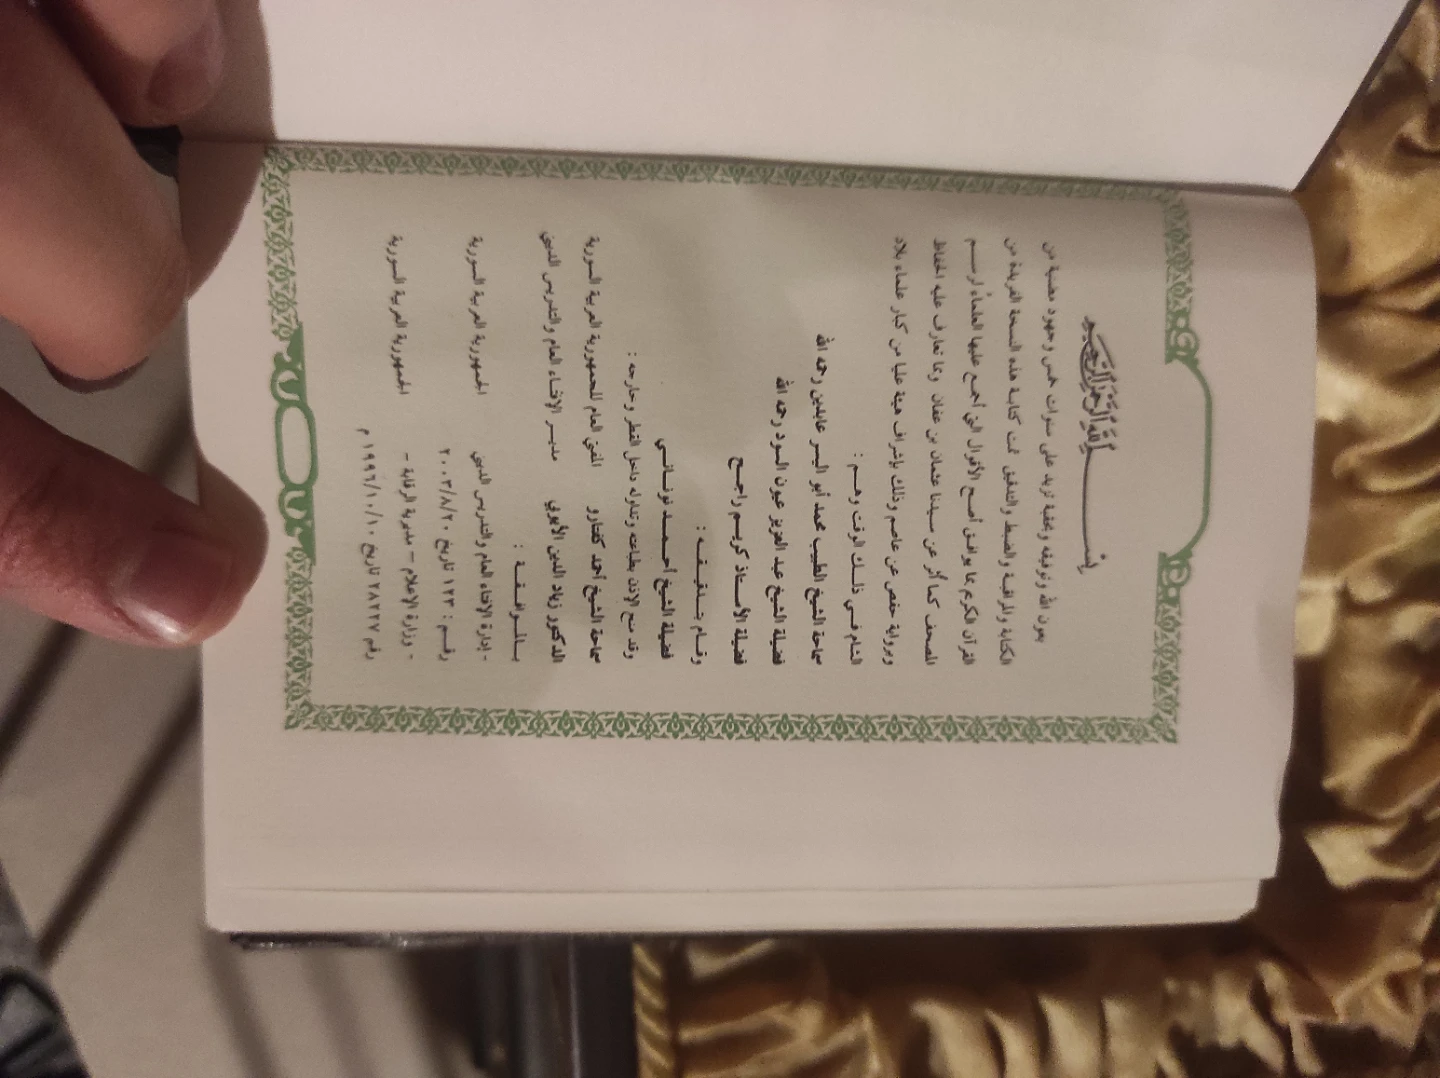 بسم الله الرحمن الرحيم
بعون الله وتوفيقه وبمحبة تزيد على سنوات خمس وجهود مضنية من
الكتابة والمراقبة والضبط والتدقيق تمت كتابة هذه النسخة الفريدة من
القرآن الكريم بما يوافق أصح الأقوال التي أجمع عليها العلماء لرسم
المصحف كما أثر عن سيدنا عثمان بن عفان وبما تعارف عليه الحفاظ
وبرواية حفص عن عاصم وذلك بإشراف هيئة عليا من كبار علماء بلاد
الشام في ذلك الوقت وهم :
سماحة الشيخ الطبيب محمد أبو اليسر عابدين رحمه الله
فضيلة الشيخ عبد العزيز عيون السود رحمه الله
فضيلة الأستاذ كريم راجح
وقام بتدقيقه :
فضيلة الشيخ أحمد
وقد منح الإذن بطباعته وتداوله داخل القطر وخارجه :
سماحة الشيخ أحمد كفتارو المفتي العام للجمهورية العربية السورية
الدكتور زياد الدين الأيوبي مدير الإفتاء العام والتدريس الديني
بالموافقة :
- إدارة الإفتاء العام والتدريس الديني الجمهورية العربية السورية
رقم : ١٢٣ تاريخ ٢٠٠٣/٨/٢٠
- وزارة الإعلام – مديرية الرقابة – الجمهورية العربية السورية
رقم ٢٨٢٢٧ تاريخ ١٩٩٦/١٠/١٠ م